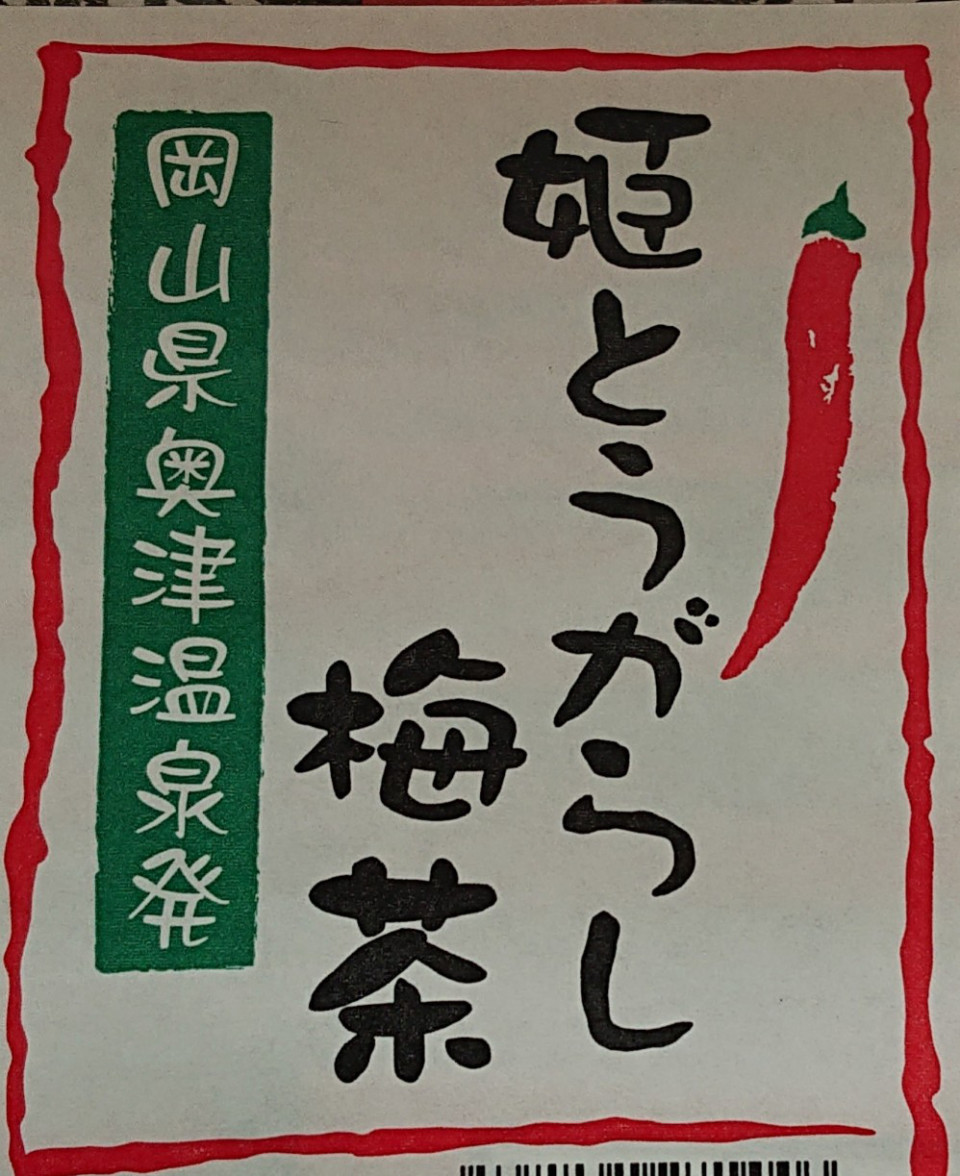 姫とうがらし
梅茶
岡山県奥津温泉発